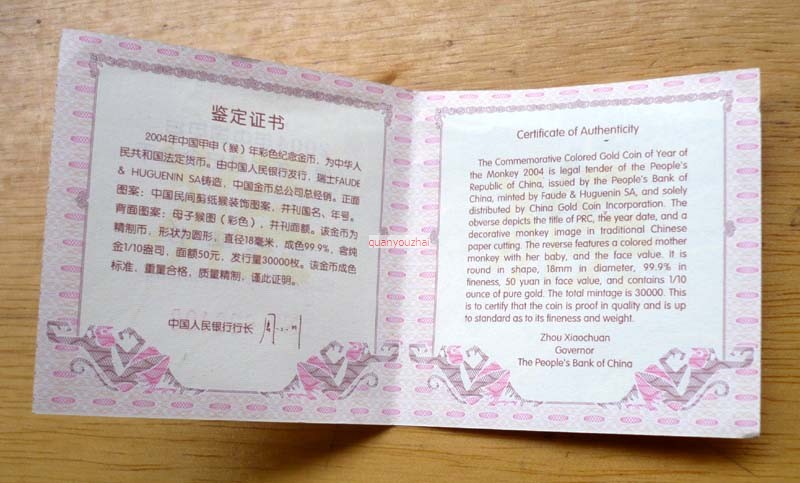 鉴定证书
2004年中国甲申（猴）年彩色纪念金币，为中华人
民共和国法定货币。由中国人民银行发行，瑞士FAUDE
& HUGUENIN SA铸造，中国金币总公司总经销。正面
图案：中国民间剪纸猴装饰图案，并刊国名、年号。
背面图案：母子猴图（彩色），并刊面额。该金币为
精制币，形状为圆形，直径18毫米，成色99.9%，含纯
金1/10盎司，面额50元，发行量30000枚。该金币成色
标准，重量合格，质量精制，谨此证明。
中国人民银行行长
quanyouzhai
Certificate of Authenticity
The Commemorative Colored Gold Coin of Year of
the Monkey 2004 is legal tender of the People's
Republic of China, issued by the People's Bank of
China, minted by Faude & Huguenin SA, and solely
distributed by China Gold Coin Incorporation. The
obverse depicts the title of PRC, the year date, and a
decorative monkey image in traditional Chinese
paper cutting. The reverse features a colored mother
monkey with her baby, and the face value. It is
round in shape, 18mm in diameter, 99.9% in
fineness, 50 yuan in face value, and contains 1/10
ounce of pure gold. The total mintage is 30000. This
is to certify that the coin is proof in quality and is up
to standard as to its fineness and weight.
Zhou Xiaochuan
Governor
The People's Bank of China